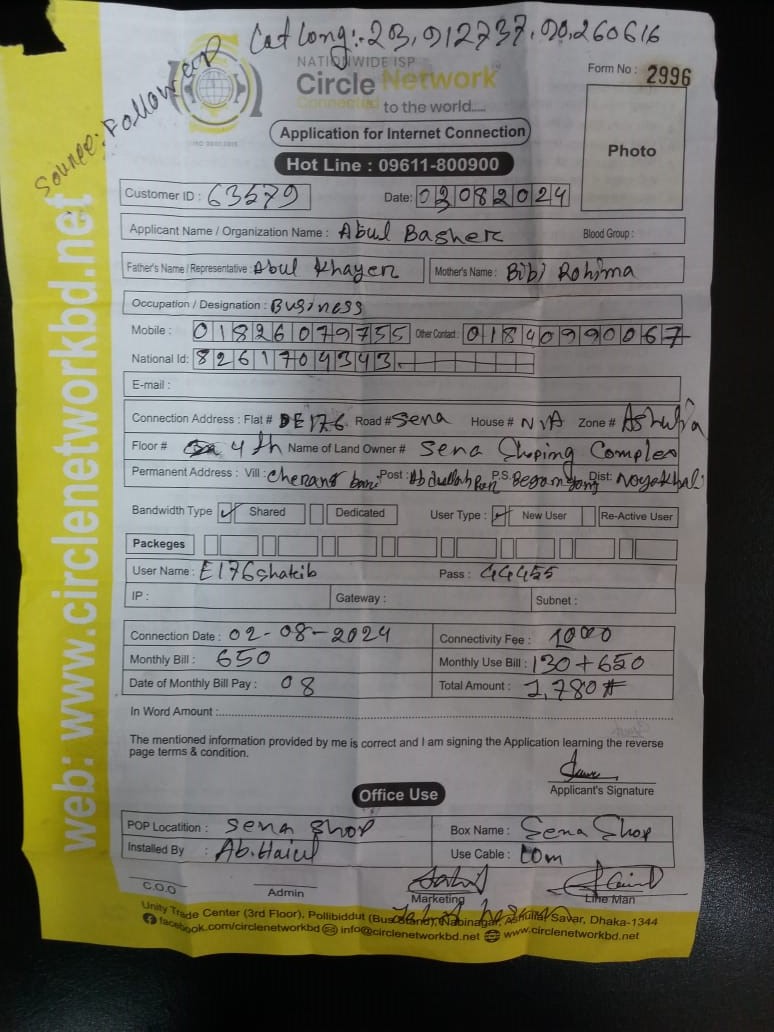 Lat Long:- 23.912737, 90.260616
Source: Follow up
NATIONWIDE ISP
Circle Network
Connected to the world....
ISO 9001:2015
Form No : 2996
Application for Internet Connection
Hot Line : 09611-800900
Photo
Customer ID : 63579 Date: 02082024
Applicant Name / Organization Name : Abul Basher Blood Group :
Father's Name / Representative : Abul Khayer Mother's Name : Bibi Rohima
Occupation / Designation : Business
Mobile : 01826079755 Other Contact : 01840990067
National Id: 8261704343
E-mail :
Connection Address : Flat # DE176 Road # Sena House # N/A Zone # Ashulia
Floor # 4th Name of Land Owner # Sena Shoping Complex
Permanent Address : Vill : Post : Abdullahpur P.S. Begamgong Dist: Noyakhali
Bandwidth Type ✓ Shared Dedicated User Type : ✓ New User Re-Active User
Packeges
User Name : E176shakib Pass : 44455
IP : Gateway : Subnet :
Connection Date : 02-08-2024 Connectivity Fee : 1000
Monthly Bill : 650 Monthly Use Bill : 130+650
Date of Monthly Bill Pay : 08 Total Amount : 1,780#
In Word Amount :
The mentioned information provided by me is correct and I am signing the Application learning the reverse
page terms & condition.
Applicant's Signature
Office Use
POP Locatition : Sena Shop Box Name : Sena Shop
Installed By : Ab. Use Cable : 10m
C.O.O Admin Marketing Line Man
Unity Trade Center (3rd Floor), Pollibiddut (Bus Stand), Nabinagar, Ashulia, Savar, Dhaka-1344
facebook.com/circlenetworkbd info@circlenetworkbd.net www.circlenetworkbd.net
web: www.circlenetworkbd.net